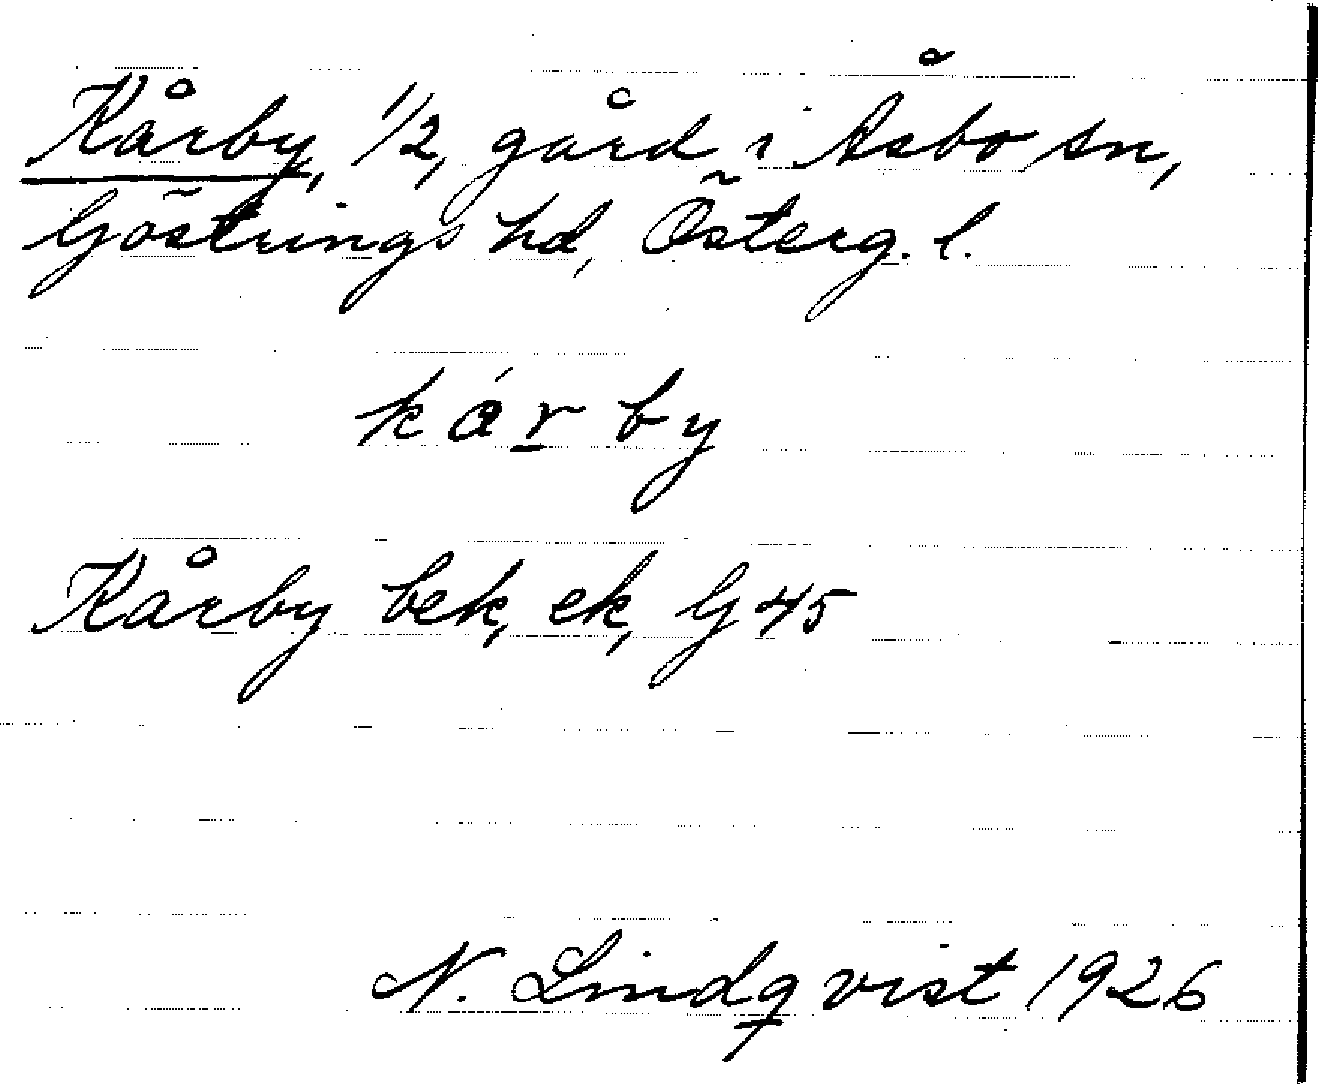 Kårby, 1/2, gård i Åsbo sn,
Göstrings hd, Österg. l.
kárby
Kårby bek, ek, G 45
N. Lindqvist 1926